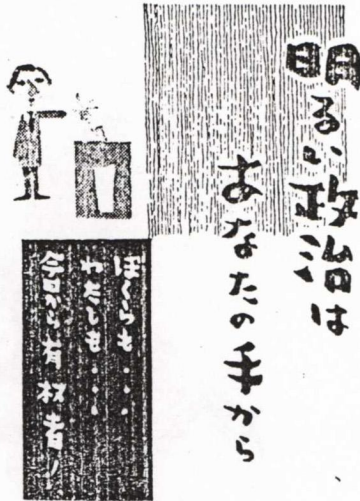 明るい政治は
あなたの手から
ぼくらも・・・
わたしも・・・
今日から有权者!